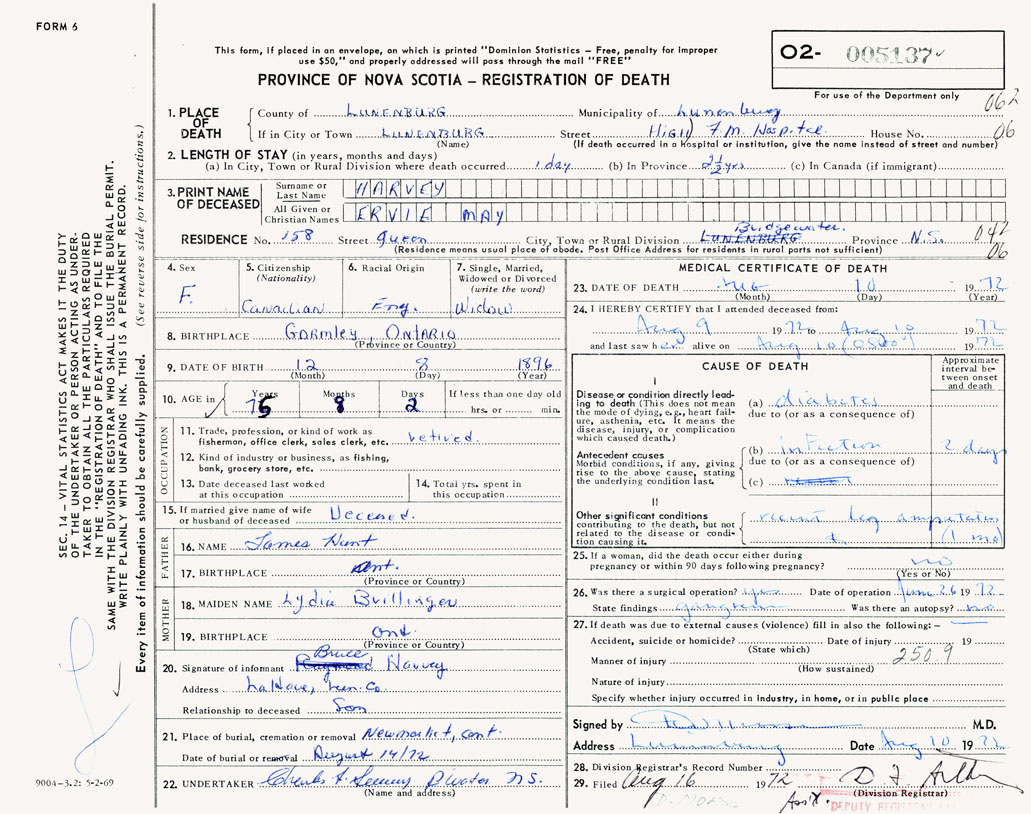 FORM 6
This form, if placed in an envelope, on which is printed "Dominion Statistics – Free, penalty for improper
use $50," and properly addressed will pass through the mail "FREE"
PROVINCE OF NOVA SCOTIA – REGISTRATION OF DEATH
02- 005137
For use of the Department only
062
06
SEC. 14 – VITAL STATISTICS ACT MAKES IT THE DUTY
OF THE UNDERTAKER OR PERSON ACTING AS UNDER-
TAKER TO OBTAIN ALL THE PARTICULARS REQUIRED
IN THE "REGISTRATION OF DEATH" AND TO FILE THE
SAME WITH THE DIVISION REGISTRAR WHO SHALL ISSUE THE BURIAL PERMIT.
WRITE PLAINLY WITH UNFADING INK. THIS IS A PERMANENT RECORD.
Every item of information should be carefully supplied. (See reverse side for instructions.)
1. PLACE OF DEATH
County of LUNENBURG Municipality of Lunenburg
If in City or Town LUNENBURG Street HIGH F.M. Hospital House No.
(Name) (If death occurred in a hospital or institution, give the name instead of street and number)
2. LENGTH OF STAY (in years, months and days)
(a) In City, Town or Rural Division where death occurred 1 day (b) In Province 2½ yrs (c) In Canada (if immigrant)
3. PRINT NAME OF DECEASED
Surname or Last Name HARVEY
All Given or Christian Names ERVIE MAY
Bridgewater
RESIDENCE No. 158 Street Queen City, Town or Rural Division LUNENBURG Province N.S.
042
06
(Residence means usual place of abode. Post Office Address for residents in rural parts not sufficient)
4. Sex F.
5. Citizenship (Nationality) Canadian
6. Racial Origin Eng.
7. Single, Married, Widowed or Divorced (write the word) Widow
8. BIRTHPLACE GORMLEY, ONTARIO
(Province or Country)
9. DATE OF BIRTH 12 8 1896
(Month) (Day) (Year)
10. AGE in Years 75 Months 8 Days 2 If less than one day old hrs. or min.
OCCUPATION
11. Trade, profession, or kind of work as fisherman, office clerk, sales clerk, etc. retired.
12. Kind of industry or business, as fishing, bank, grocery store, etc.
13. Date deceased last worked at this occupation
14. Total yrs. spent in this occupation
15. If married give name of wife or husband of deceased Deceased.
FATHER
16. NAME James Hunt
17. BIRTHPLACE Ont.
(Province or Country)
MOTHER
18. MAIDEN NAME Lydia Brillinger
19. BIRTHPLACE Ont.
(Province or Country)
Bruce
20. Signature of informant Raymond Harvey
Address LaHave, Lun. Co.
Relationship to deceased Son
21. Place of burial, cremation or removal Newmarket, Ont.
Date of burial or removal August 14/72
22. UNDERTAKER B'water N.S.
(Name and address)
9004-3.2: 5-2-69
MEDICAL CERTIFICATE OF DEATH
23. DATE OF DEATH Aug 10 1972
(Month) (Day) (Year)
24. I HEREBY CERTIFY that I attended deceased from:
Aug 9 1972 to Aug 10 1972
and last saw her alive on Aug 10 (0800) 1972
CAUSE OF DEATH
Approximate interval between onset and death
I
Disease or condition directly leading to death (This does not mean the mode of dying, e.g., heart failure, asthenia, etc. It means the disease, injury, or complication which caused death.)
(a) diabetes
due to (or as a consequence of)
Antecedent causes
Morbid conditions, if any, giving rise to the above cause, stating the underlying condition last.
(b) infection 2 days
due to (or as a consequence of)
(c)
II
Other significant conditions contributing to the death, but not related to the disease or condition causing it.
recent leg amputation
(1 mo)
25. If a woman, did the death occur either during
pregnancy or within 90 days following pregnancy? no
(Yes or No)
26. Was there a surgical operation? yes Date of operation June 26 1972
State findings gangrene Was there an autopsy? no
27. If death was due to external causes (violence) fill in also the following: –
Accident, suicide or homicide? Date of injury 19
(State which)
250.9
Manner of injury
(How sustained)
Nature of injury
Specify whether injury occurred in industry, in home, or in public place
Signed by M.D.
Address Lunenburg Date Aug 10 1972
28. Division Registrar's Record Number
29. Filed Aug 16 1972
(Division Registrar)
Ass't.
DEPUTY REGISTRAR